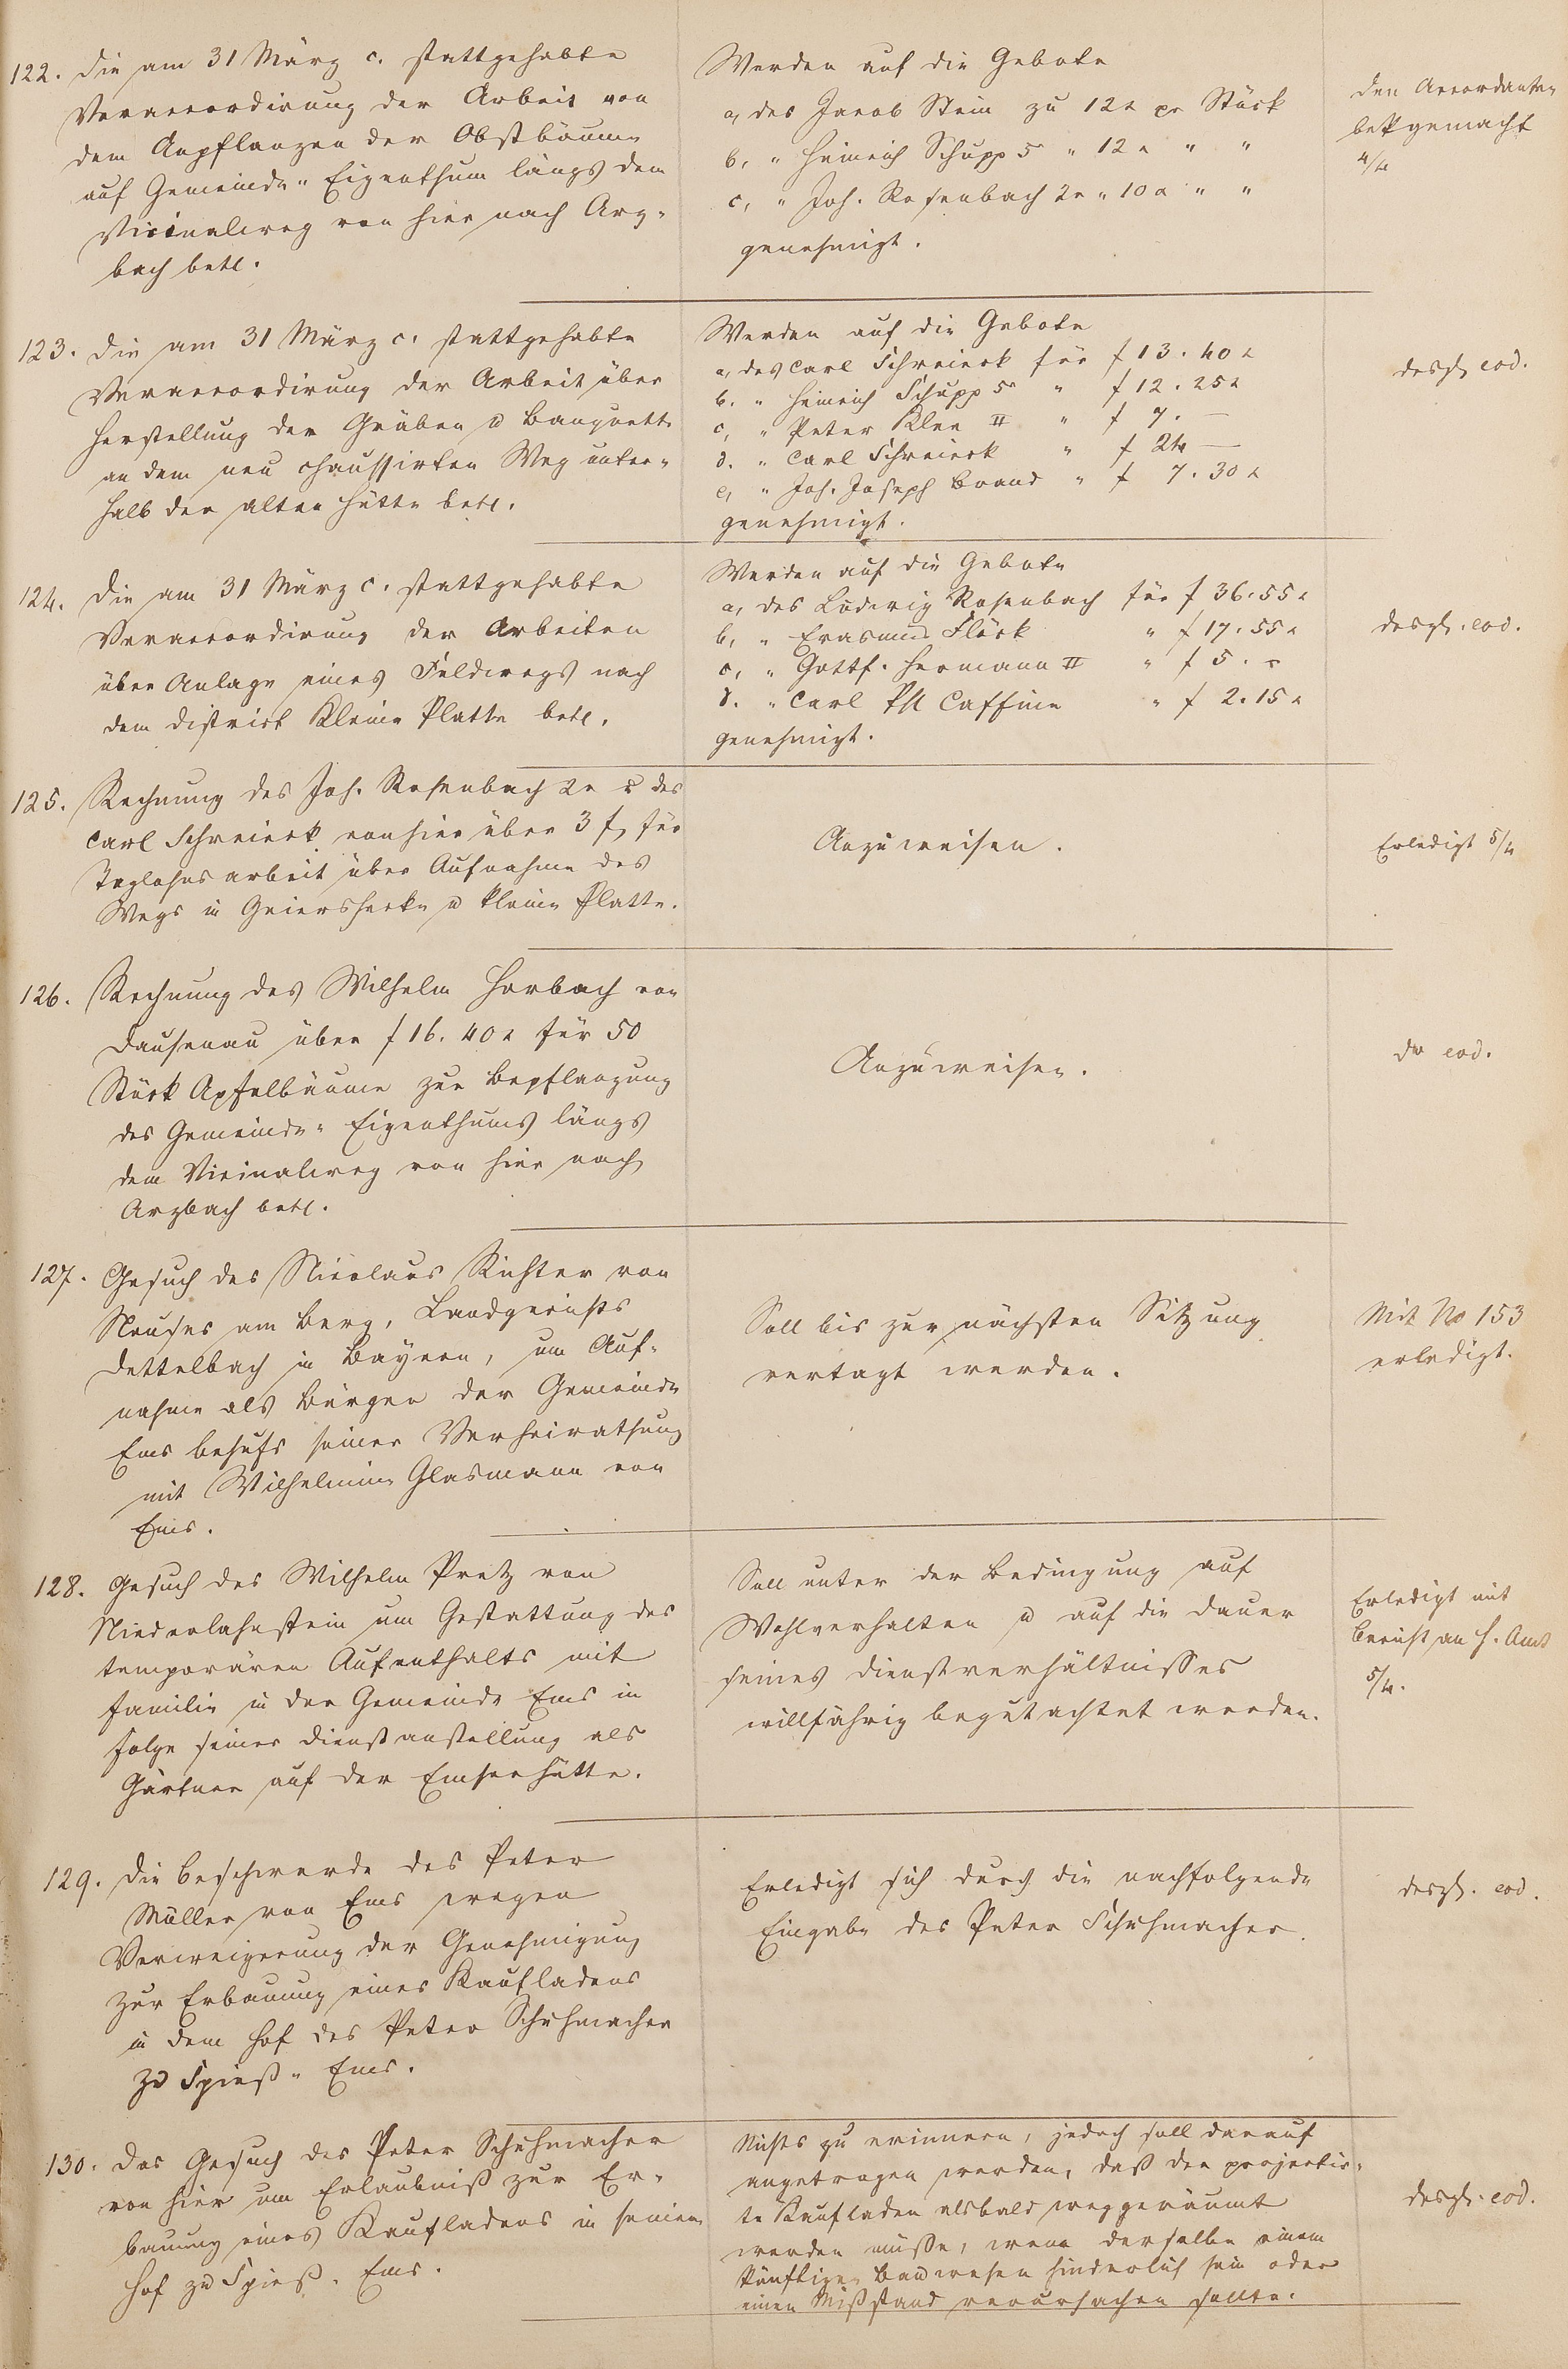 122. Die am 31 März c. stattgehabte
Veraccordirung der Arbeit von
dem Anpflanzen der Obstbäume
auf Gemeinde-Eigenthum längs dem
Vicinalweg von hier nach Arz-
bach betr.
Werden auf die Gebote
a, des Jacob Stein zu 12 x pr Stück
b, " Heinrich Schupp 5r " 12 x " "
c, " Joh. Rosenbach 2r " 10 x " "
genehmigt.
den Accordanten
bekgemacht
4/4
123. Die am 31 März c. stattgehabte
Veraccordirung der Arbeit über
Herstellung der Gräben u Banquette
an dem neu chaussirten Weg unter-
halb der alten Hütte betr.
Werden auf die Gebote
a, des Carl Schreieck für f 13. 40 x
b. " Heinrich Schupp 5r " f 12. 25 x
c, " Peter Klee II " f 7. —
d. " Carl Schreieck " f 24 —
e, " Joh. Joseph Brand " f 7. 30 x
genehmigt.
desgl. eod.
124. Die am 31 März c. stattgehabte
Veraccordirung der Arbeiten
über Anlage eines Feldwegs nach
dem District Kleine Platte betr.
Werden auf die Gebote
a, des Ludwig Rosenbach für f 36. 55 x
b, " Erasmus Flöck " f 17. 55 x
c, " Gottf. Hermann II " f 5. -
d. " Carl Phl Caffine " f 2. 15 x
genehmigt.
desgl. eod.
125. Rechnung des Joh. Rosenbach 2r u des
Carl Schreieck von hier über 3 f, für
Taglohnarbeit über Aufnahme des
Wegs in Geiershecke u kleine Platte.
Anzuweisen.
Erledigt 5/4
126. Rechnung des Wilhelm Horbach von
Dausenau über f 16. 40 x für 50
Stück Apfelbäume zur Bepflanzung
des Gemeinde-Eigenthums längs
dem Vicinalweg von hier nach
Arzbach betr.
Anzuweisen.
do eod.
127. Gesuch des Nicolaus Richter von
Neuses am Berg, Landgerichts
Dettelbach in Bayern, um Auf-
nahme als Bürger der Gemeinde
Ems behufs seiner Verheirathung
mit Wilhelmine Glasmann von
Ems.
Soll bis zur nächsten Sitzung
vertagt werden.
Mit No 153
erledigt.
128. Gesuch des Wilhelm Pretz von
Niederlahnstein um Gestattung des
temporären Aufenthalts mit
Familie in der Gemeinde Ems in
Folge seiner Dienstanstellung als
Gärtner auf der Emserhütte.
Soll unter der Bedingung auf
Wohlverhalten u auf die Dauer
seines Dienstverhältnisses
willfährig begutachtet werden.
Erledigt mit
Bericht an H. Amt
5/4.
129. Die Beschwerde des Peter
Müller von Ems wegen
Verweigerung der Genehmigung
zur Erbauung eines Kaufladens
in dem Hof des Peter Schuhmacher
zu Spieß-Ems.
Erledigt sich durch die nachfolgende
Eingabe des Peter Schuhmacher.
desgl. eod.
130. Das Gesuch des Peter Schuhmacher
von hier um Erlaubniß zur Er-
bauung eines Kaufladens in seinem
Hof zu Spieß-Ems.
Nichts zu erinnern, jedoch soll darauf
angetragen werden, daß der projectir-
te Kaufladen alsbald weggeräumt
werden müsse, wenn derselbe einem
künftigen Bauwesen hinderlich sein oder
einen Mißstand verursachen sollte.
desgl. eod.